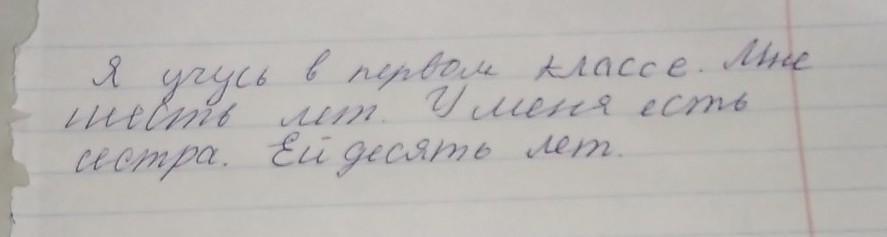 Я учусь в первом классе. Мне
шесть лет. У меня есть
сестра. Ей десять лет.